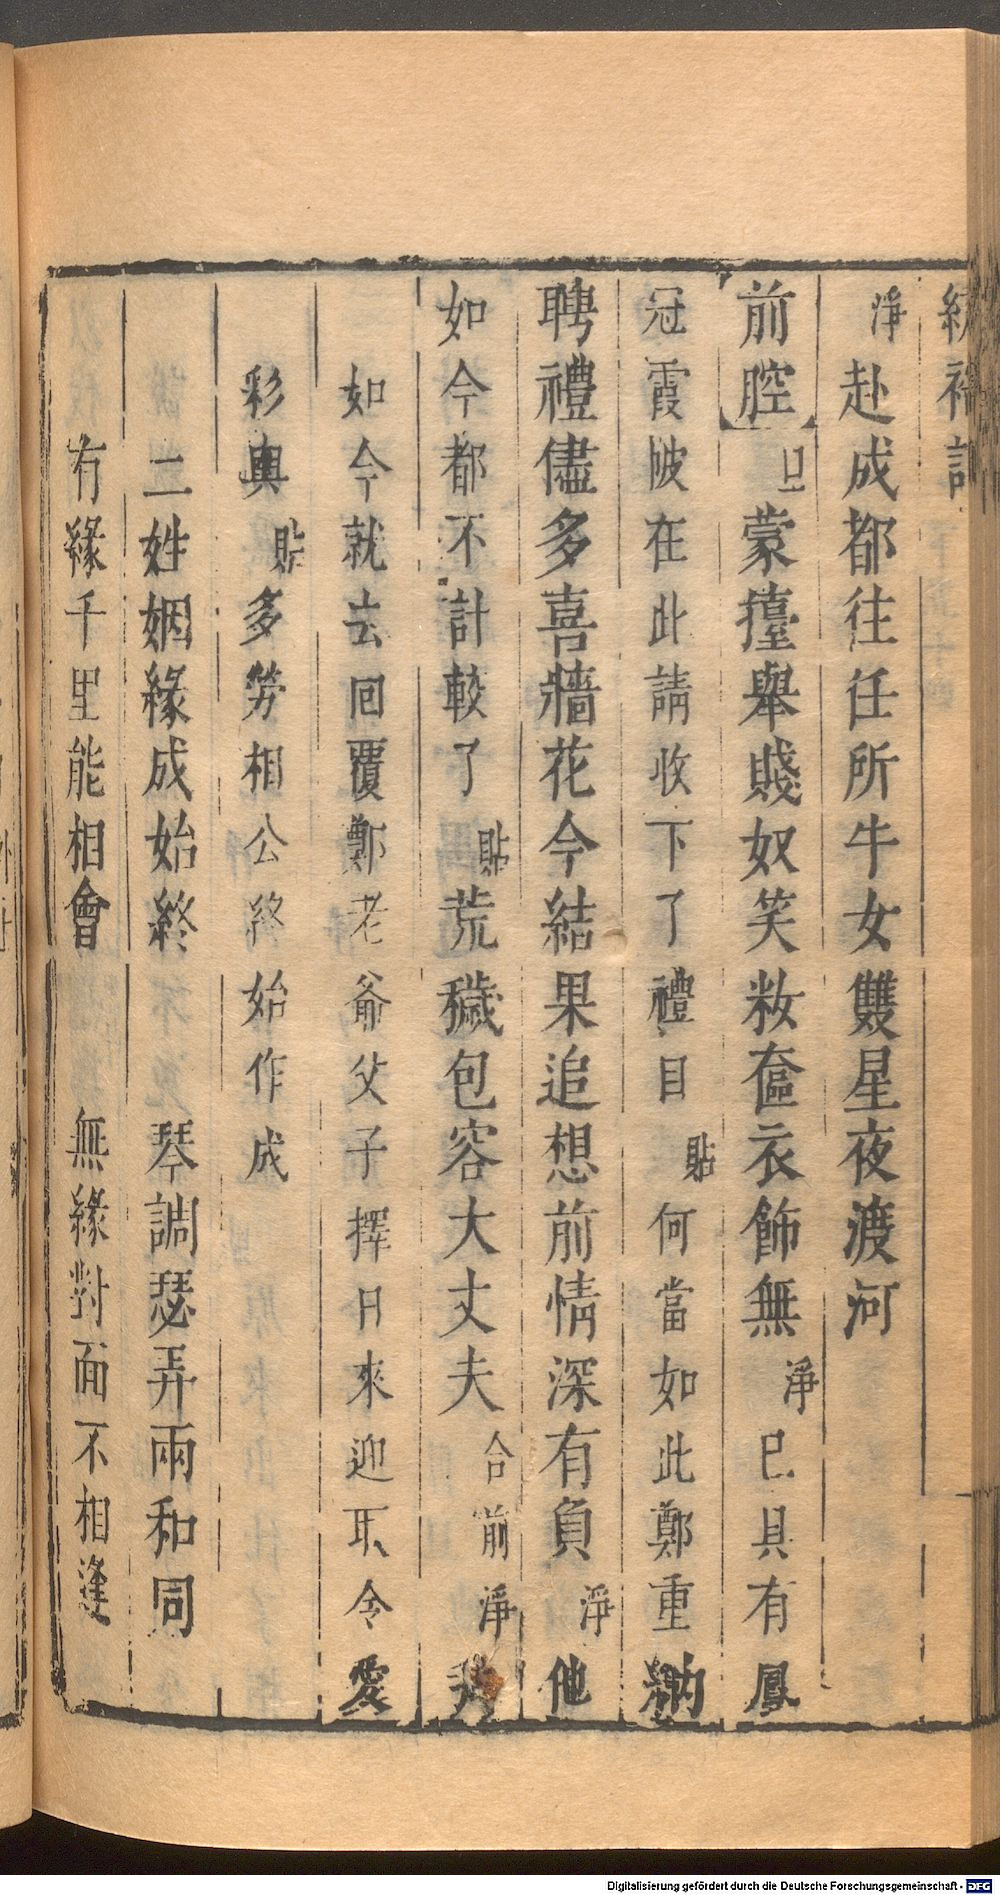 淨赴成都往任所牛女雙星夜渡河
前腔旦蒙擡舉賤奴笑妝奩衣飾無淨已具有鳳
冠霞帔在此請收下了禮目貼何當如此鄭重納
聘禮儘多喜牆花今結果追想前情深有負淨他
如今都不計較了貼荒穢包容大丈夫合前淨我
如今就去回覆鄭老爺父子擇日來迎取令愛
彩輿貼多勞相公終始作成
二姓姻緣成始終 琴調瑟弄兩和同
有緣千里能相會 無緣對面不相逢
Digitalisierung gefördert durch die Deutsche Forschungsgemeinschaft - DFG